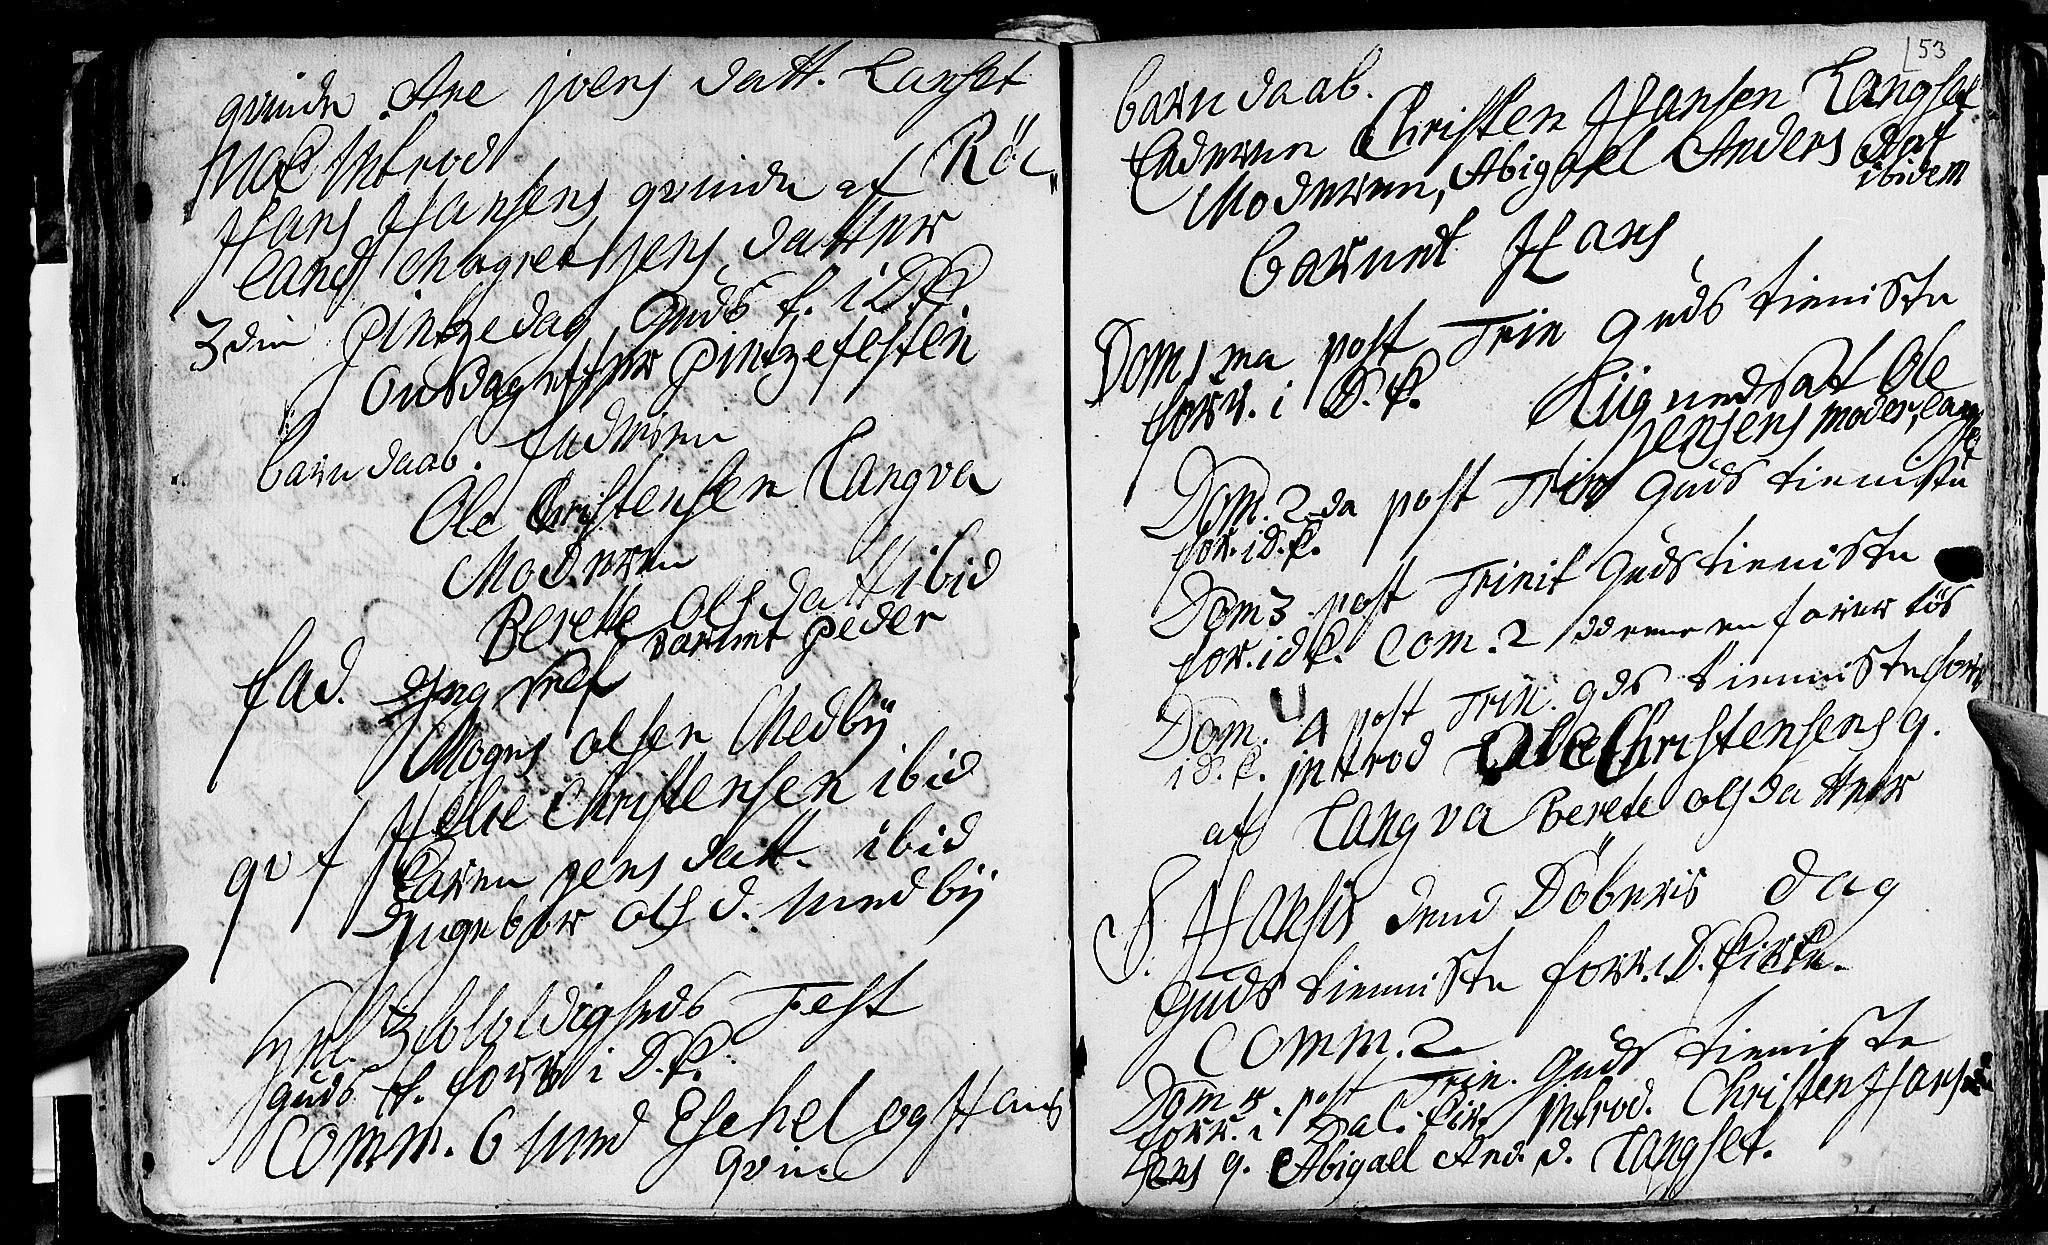 qvinde Ane joens datt. Langset
Noch Introd
Hans Hansens qvinde af Röc
land Magret jens datter
3die Pintzedag Guds t. i D K.
Onsdag efter Pintzefesten
barn daab. faderen
Ole Christensen Langva
Moderen
Berette Ols datt ibid
barnet Peder
fad.
Mogns olsen Medbÿ
Helie Christensen ibid
qv f Karen jens datt. ibid
Ingebor Ols d. Medbÿ
3foldigheds Fest
Guds t. forr. i D. K.
Comm. 6 med Eschel og Hans
qvine
53
barn daab.
Faderen Christen Hansen Langset
Moderen, Abigael Anders datt
ibidem
barnet Hans
Dom 1 ma post Trin Guds tieniste
forr. i D. K. Liig nedsat Ole
jensens moder, Langset
Dom. 2 da post Trin Guds tieniste
for. i D. K.
Dom 3 post Trinit Guds tieniste
for. i D K. Com. 2
Dom. 4 post Trin. gds tieniste forr
i D. K. Introd Ole Christensens q.
af Langva Berete olsdatter
S. Hanses dend Döberis dag
Guds tieniste forr. i D. Kirke.
Comm. 2
Dom 5. post Trin. Guds tieniste
forr. i Dal. Kir. Introd. Christen Han
sens q. Abigael And. d. Langset.